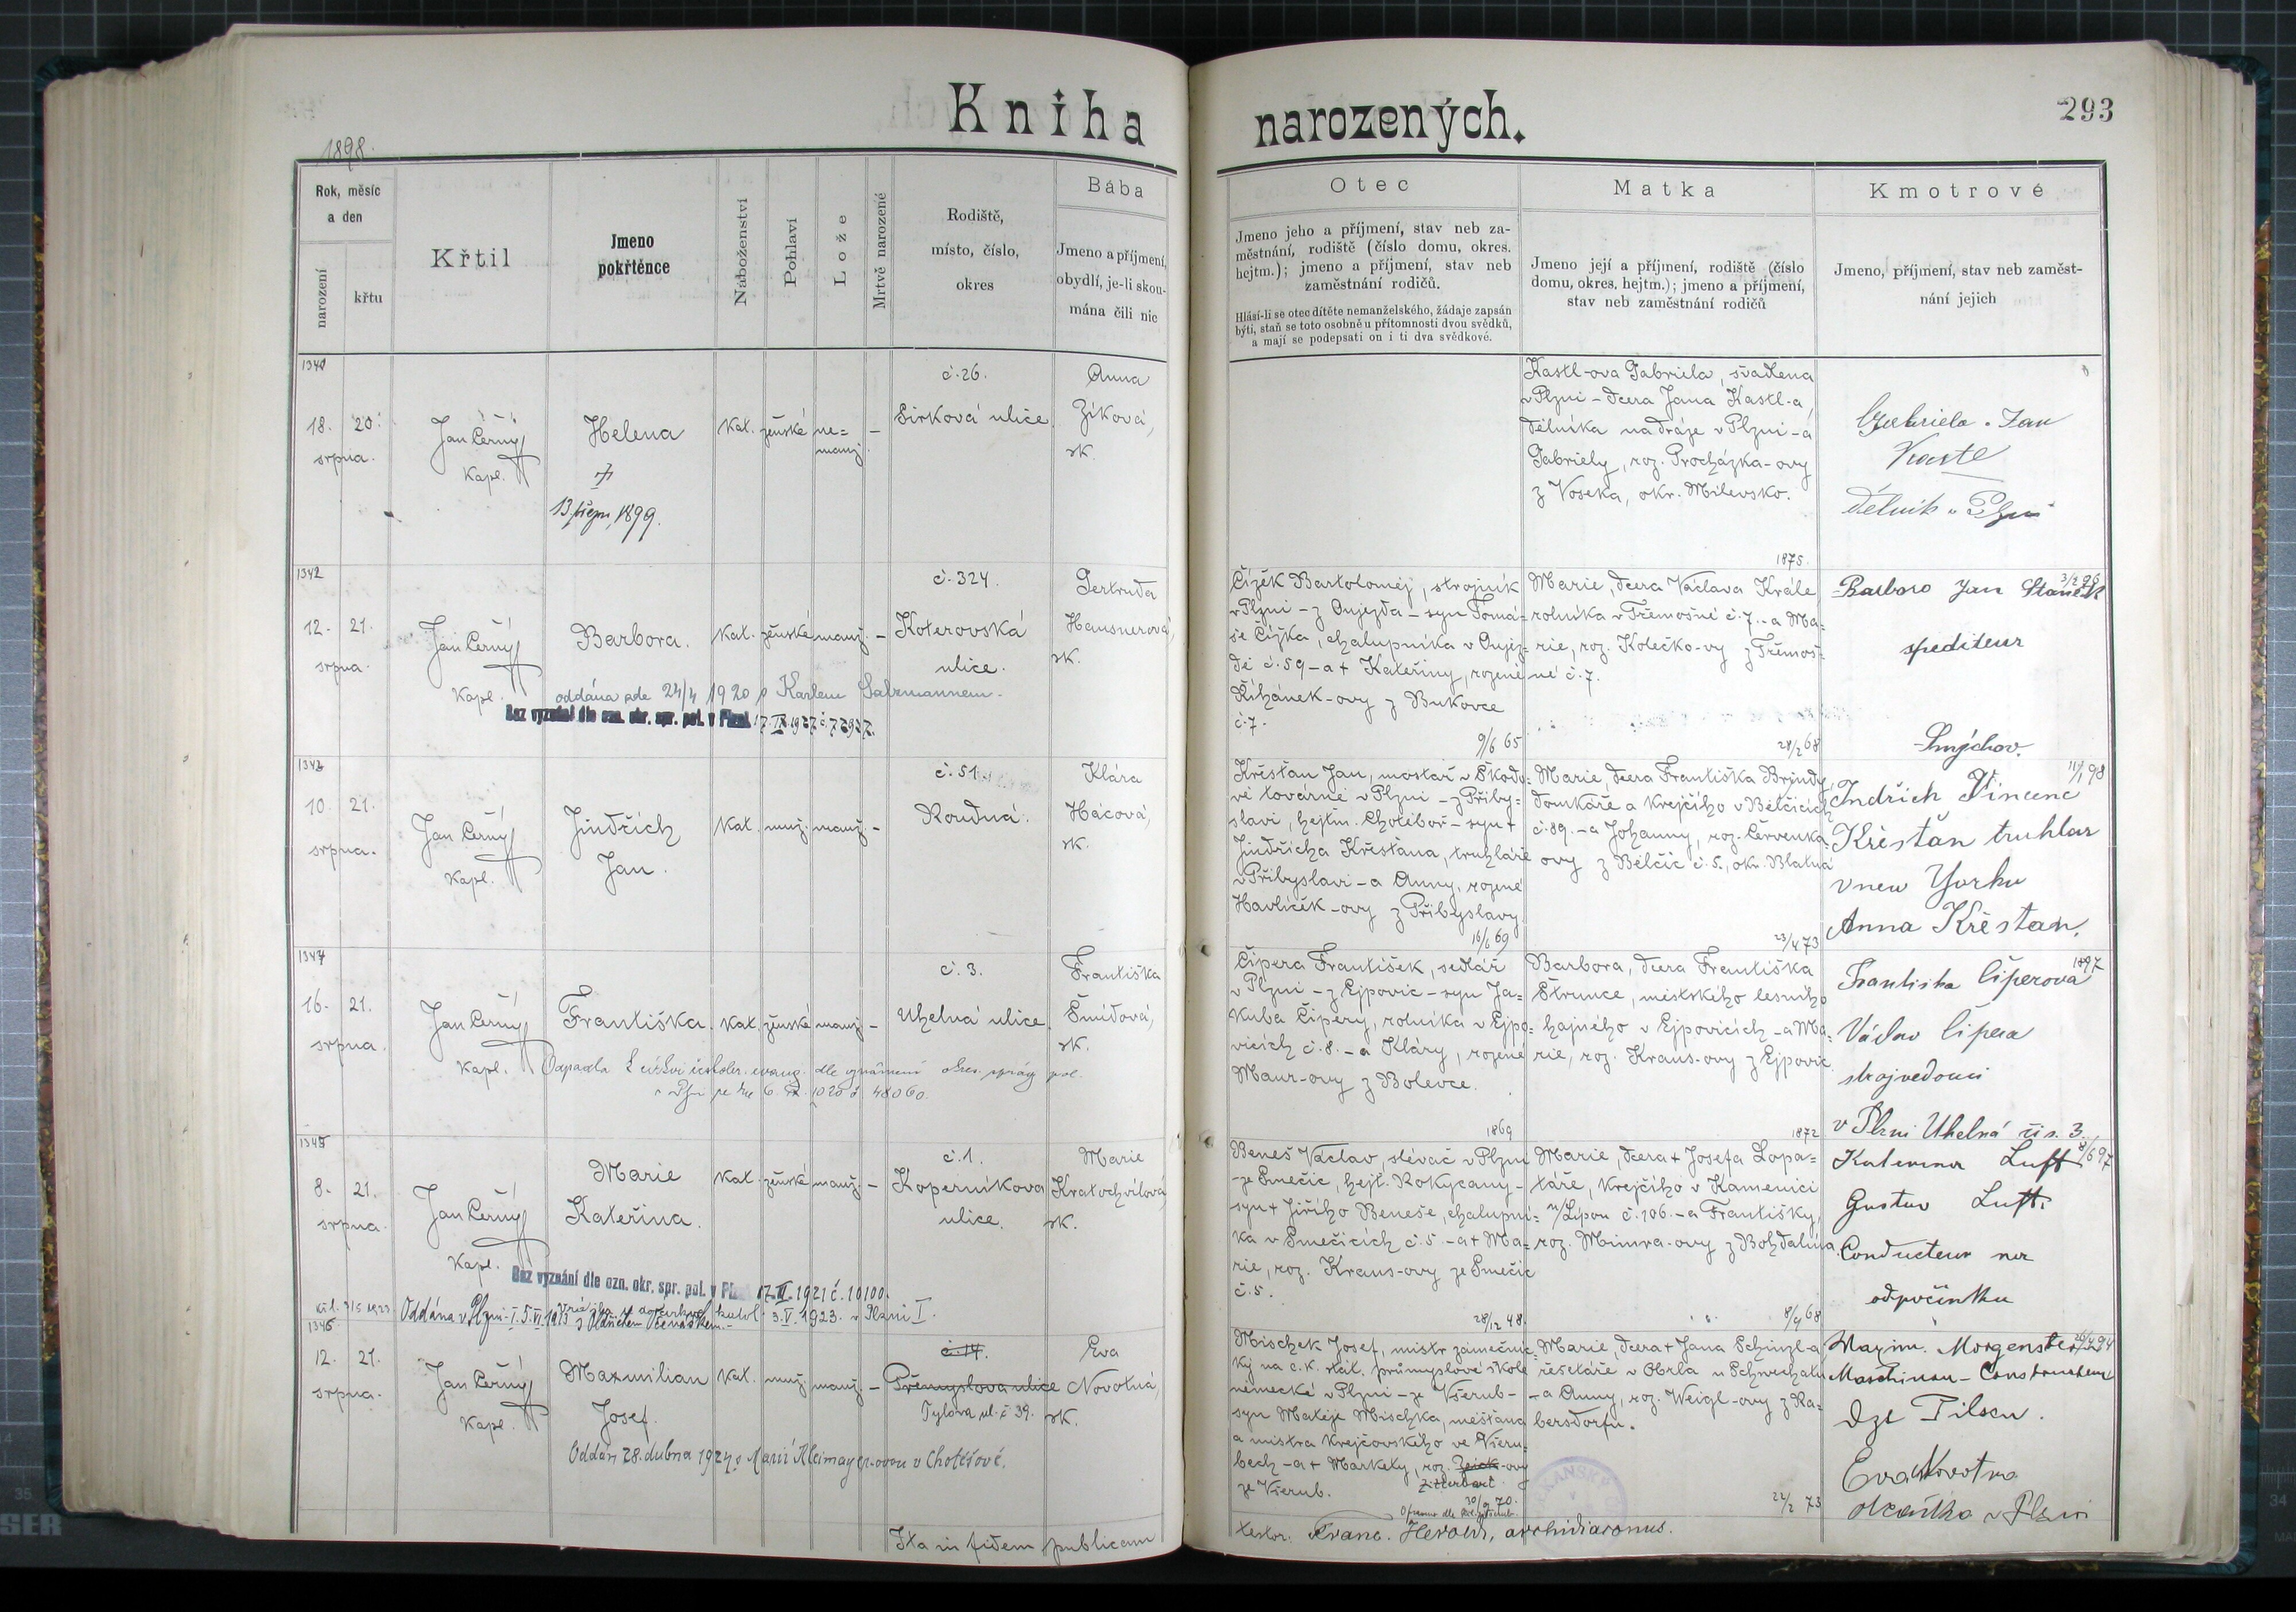 Kniha narozených.
293
1898.
Rok, měsíc a den
narození
křtu
Křtil
Jmeno pokřtěnce
Náboženství
Pohlaví
Lože
Mrtvě narozené
Rodiště, místo, číslo, okres
Bába
Jmeno a příjmení, obydlí, je-li skoumána čili nic
Otec
Jmeno jeho a příjmení, stav neb za-
městnání, rodiště (číslo domu, okres.
hejtm.); jmeno a příjmení, stav neb
zaměstnání rodičů.
Hlásí-li se otec dítěte nemanželského, žádaje zapsán
býti, staň se toto osobně u přítomnosti dvou svědků,
a mají se podepsati on i ti dva svědkové.
Matka
Jmeno její a příjmení, rodiště (číslo
domu, okres. hejtm.); jmeno a příjmení,
stav neb zaměstnání rodičů
Kmotrové
Jmeno, příjmení, stav neb zaměst-
nání jejich
18. 20.
srpna.
Jan Černý
kapl.
Helena
13. 1899.
kat. ženské ne=
manž. –
č. 26.
Sirková ulice.
Anna
Zíková,
zk.
Kastl-ova Gabriela, švadlena
v Plzni – dcera Jana Kastl-a,
dělníka na dráze v Plzni – a
Gabriely, roz. Procházka-ovy
z Voseka, okr. Milevsko.
1875.
Gabriela. Jan
Kastl
dělník v Plzni
1342
12. 21.
srpna.
Jan Černý
kapl.
Barbora.
kat. ženské manž. –
č. 324.
Koterovská
ulice.
Gertruda
Hausnerová,
zk.
oddána dle 24/4 1920 s Karlem Salzmannem.
Bez vyznání dle ozn. okr. spr. pol. v Plzni
Čížek Bartoloměj, strojník
v Plzni – z Oujezda – syn Tomá-
še Čížka, chalupníka v Oujez-
dě č. 59 – a + Kateřiny, rozené
Říhánek-ovy z Bukovce
č. 7.
9/6 65
Marie, dcera Václava Krále
rolníka v Třemošné č. 7. – a Ma=
rie, roz. Kolečko-vy z Třemoš=
né č. 7.
28/2 68
Barbora Jan Staněk
spediteur
Smýchov.
10. 21.
srpna.
Jan Černý
kapl.
Jindřich
Jan.
kat. muž. manž. –
č. 51
Roudná.
Klára
Hácová,
zk.
Křesťan Jan, mostař v Škodo-
vě továrně v Plzni – z Přiby=
slavi, hejtm. Chotěboř – syn +
Jindřicha Křesťana, truhláře
v Přibyslavi – a Anny, rozené
Havlíček-ovy z Přibyslavy.
16/6 69
Marie, dcera Františka Bryndy,
domkáře a krejčího v Bělčicích
č. 89. – a Johanny, roz. Červenka-
ovy z Bělčic č. 5., okr. Blatná
23/4 73
11/1 98
Jndřich Vincenc
Křesťan truhlar
v new Yorku
Anna Křesťan.
1344
16. 21.
srpna.
Jan Černý
kapl.
Františka.
kat. ženské manž. –
č. 3.
Uhelná ulice.
Františka
Šmídová,
zk.
Čipera František, sedlář
v Plzni – z Ejpovic – syn Ja=
kuba Čipery, rolníka v Ejpo-
vicích č. 8. – a Kláry, rozené
Maur-ovy z Bolevce.
1869
Barbora, dcera Františka
Štrunce, městského lesního
hajného v Ejpovicích – a Ma-
rie, roz. Kraus-ovy z Ejpovic
1872
1897
Frantiska Čiperová
Václav Čipera
strojvedouci
v Plzni Uhelná čis. 3.
1345
8. 21.
srpna.
Jan Černý
kapl.
Marie
Kateřina.
kat. ženské manž. –
č. 1.
Koperníkova
ulice.
Marie
Kratochvílová,
zk.
Bez vyznání dle ozn. okr. spr. pol. v Plzni 1921 č. 10100.
Oddána v Plzni
Beneš Václav, slévač v Plzni
– ze Smečic, hejt. Rokycany –
syn + Jiřího Beneše, chalupní-
ka v Smečicích č. 5 – a + Ma=
rie, roz. Kraus-ovy ze Smečic
č. 5.
28/12 48
Marie, dcera + Josefa Lopa=
táře, krejčího v Kamenici
n/Lipou č. 106. – a Františky,
roz. Mimra-ovy z Bohdalína.
8/9 68
8/6 97
Katerina Luft
Gustav Luft.
Conducteur ner
odpočinku
1346
12. 21.
srpna.
Jan Černý
kapl.
Maxmilian
Josef.
kat. muž. manž. –
č. 14.
Přemyslova ulice
Tylova ul. č. 39.
Eva
Novotná,
zk.
Oddán 28. dubna 1924 s Marií Kleimayer-ovou v Chotěšově.
Mischek Josef, mistr zámečnic-
ký na c. k. stát. průmyslové škole
německé v Plzni – ze Všerub –
syn Matěje Mischka, měšťana
a mistra krejčovského ve Všeru-
bech – a + Markety, roz. -ovy
Zitterbart
ze Všerub.
30/9 70.
Marie, dcera + Jana Schinzl-a
řešetáře v Obrla u Schwechatu
– a Anny, roz. Weigl-ovy z Ra=
bersdorfu.
22/2 73
Maxim. Morgenstern
Maschinen-Constructeur
dzt Pilsen.
Eva Novotna
v Plzni
Ita in fidem publicam
testor. Franc. Herold, archidiaconus.